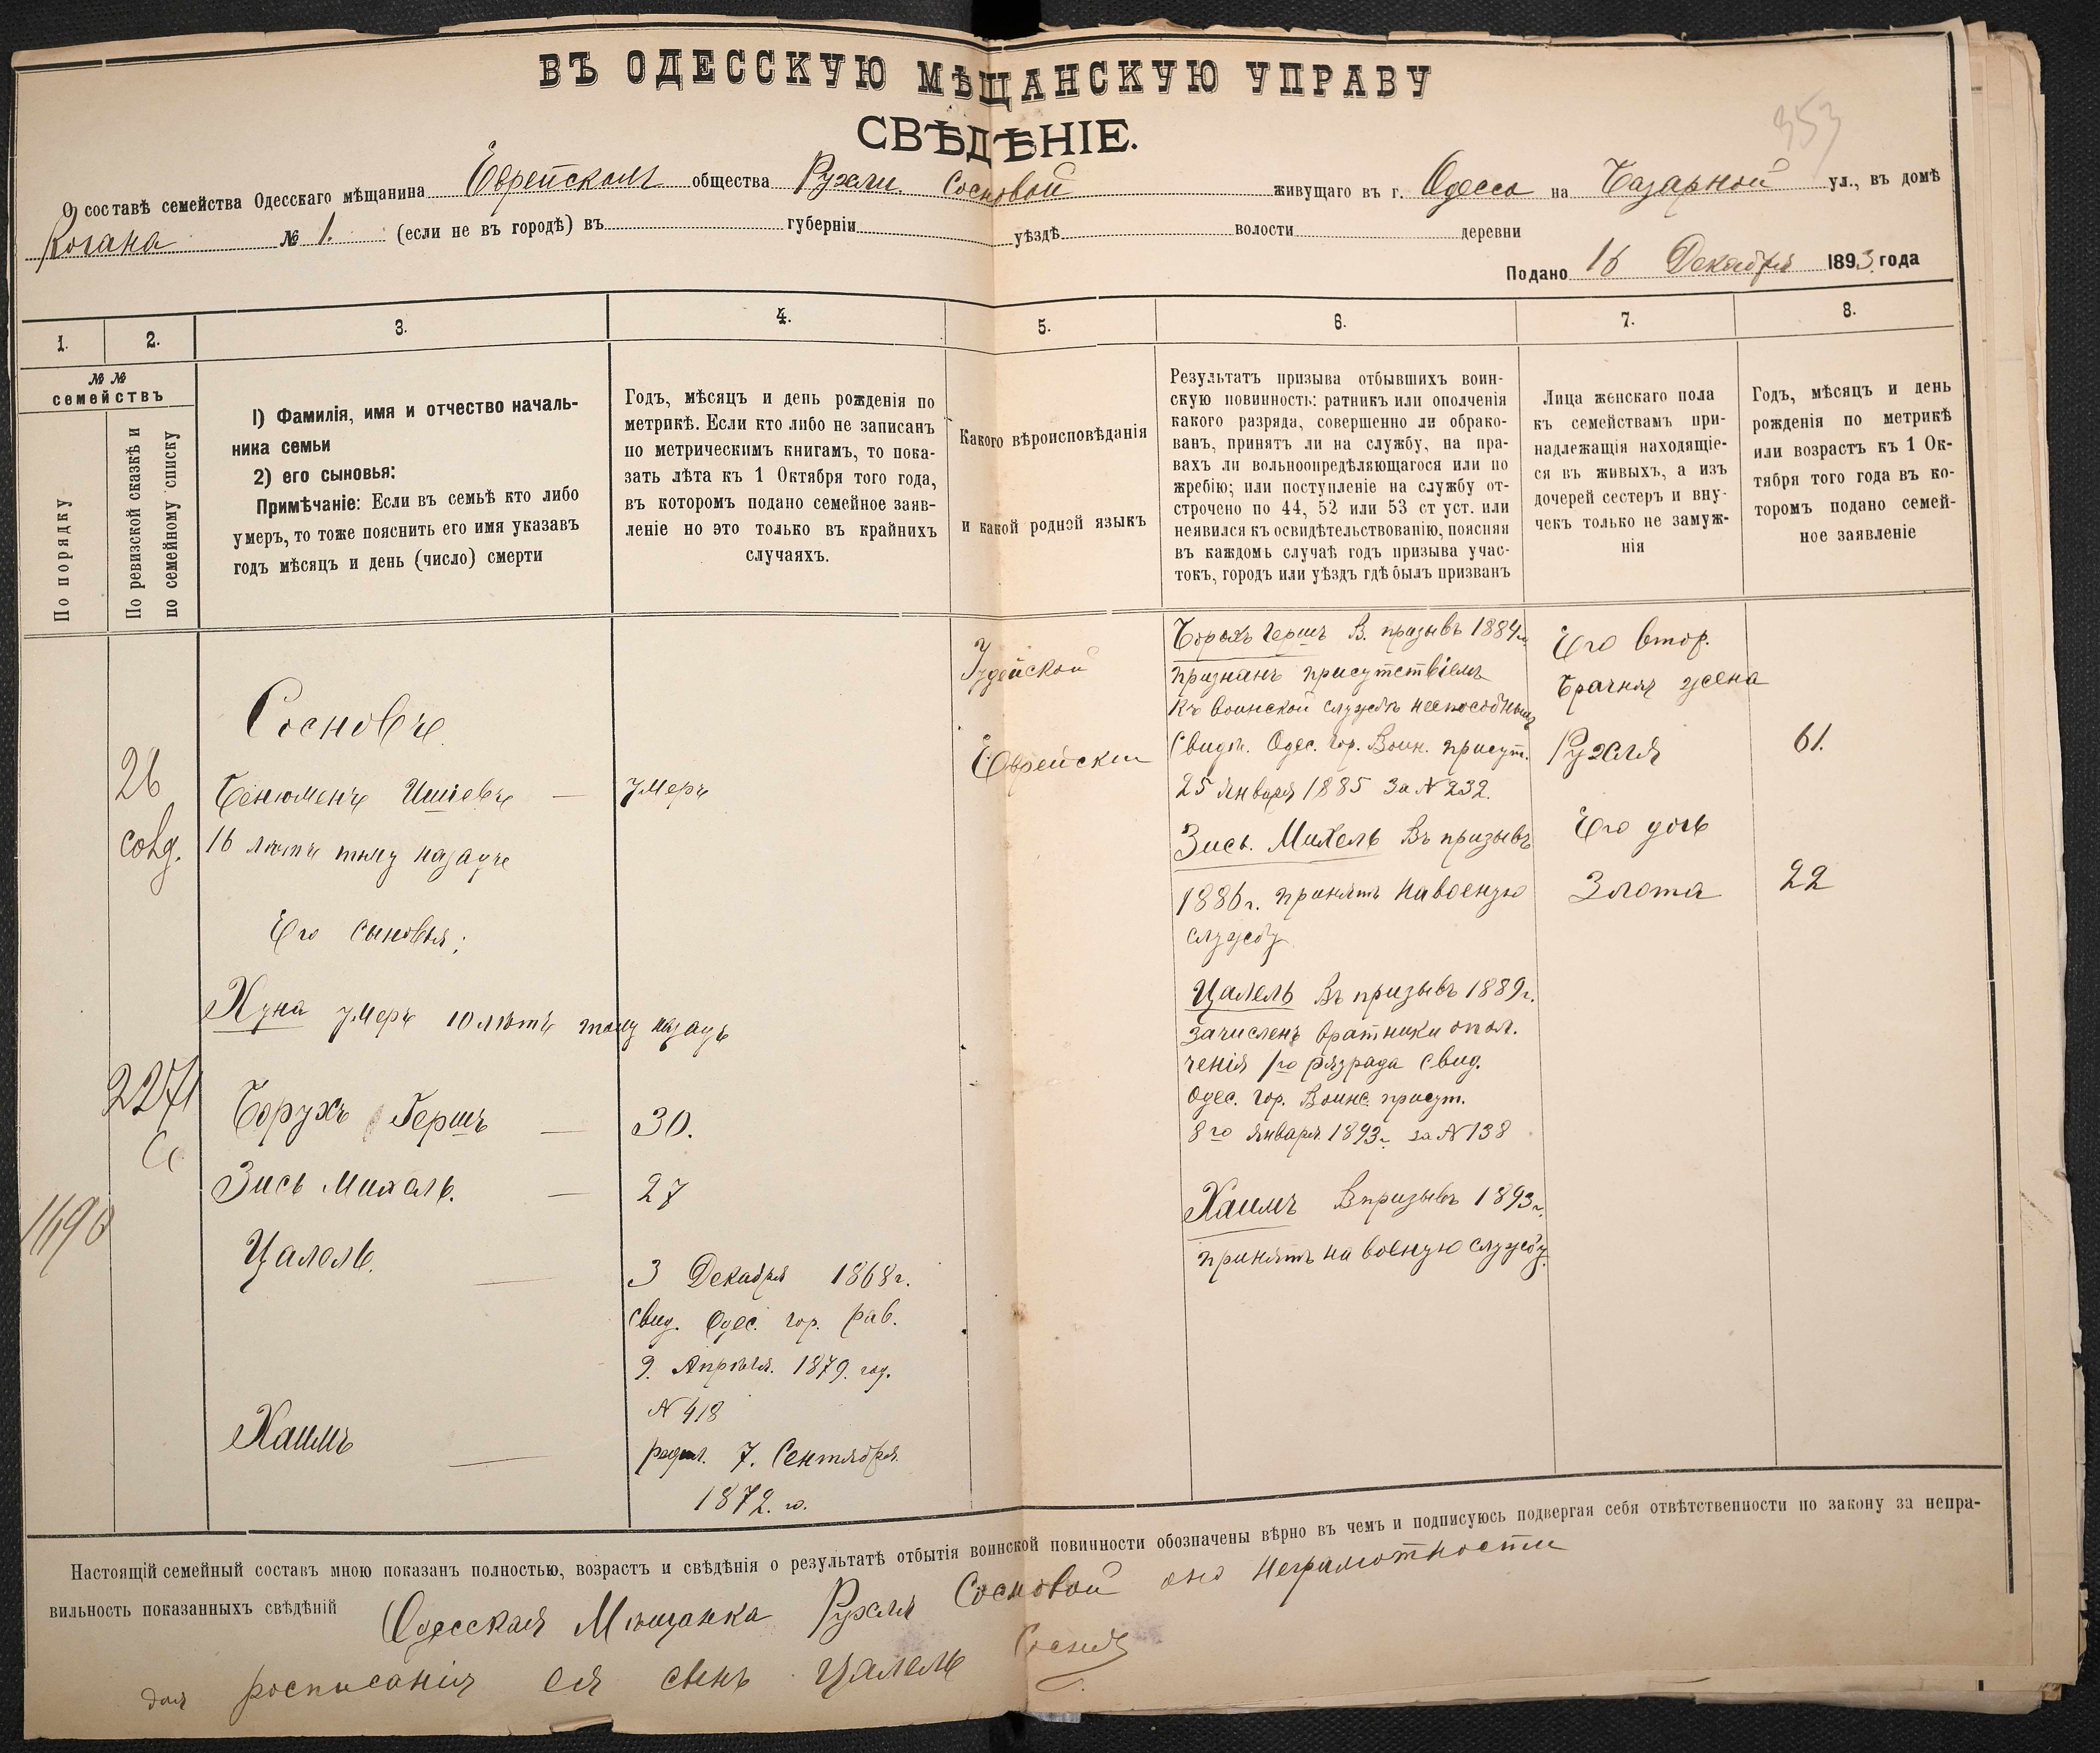 ВЪ ОДЕССКУЮ МѢЩАНСКУЮ УПРАВУ
СВѢДѢНІЕ.
353
О составѣ семейства Одесскаго мѣщанина Еврейскомъ общества Рухли Сосновой живущаго въ г. Одесса на Базарной ул., въ домѣ
Когана № 1. (если не въ городѣ) въ губерніи уѣздѣ волости деревни
Подано 16 Декабря 1893 года
1.
2.
3.
4.
5.
6.
7.
8.
№ №
семействъ
По порядку
По ревизской сказкѣ и
по семейному списку
1) Фамилія, имя и отчество началь-
ника семьи
2) его сыновья:
Примѣчаніе: Если въ семьѣ кто либо
умеръ, то тоже пояснить его имя указавъ
годъ мѣсяцъ и день (число) смерти
Годъ, мѣсяцъ и день рожденія по
метрикѣ. Если кто либо не записанъ
по метрическимъ книгамъ, то пока-
зать лѣта къ 1 Октября того года,
въ которомъ подано семейное заяв-
леніе но это только въ крайнихъ
случаяхъ.
Какого вѣроисповѣданія
и какой родной языкъ
Результатъ призыва отбывшихъ воин-
скую повинность: ратникъ или ополченія
какого разряда, совершенно ли обрако-
ванъ, принятъ ли на службу, на пра-
вахъ ли вольноопредѣляющагося или по
жребію; или поступленіе на службу от-
строчено по 44, 52 или 53 ст уст. или
неявился къ освидѣтельствованію, поясняя
въ каждомъ случаѣ годъ призыва учас-
токъ, городъ или уѣздъ гдѣ былъ призванъ
Лица женскаго пола
къ семействамъ при-
надлежащія находящіе-
ся въ живыхъ, а изъ
дочерей сестеръ и вну-
чекъ только не замуж-
нія
Годъ, мѣсяцъ и день
рожденія по метрикѣ
или возрастъ къ 1 Ок-
тября того года въ ко-
торомъ подано семей-
ное заявленіе
26
2271
Сосновъ
Бенюменъ Ишіевъ —
16 лѣтъ тому назадъ
Его сыновья;
Хуна умеръ 10 лѣтъ тому назадъ
Борухъ Гершъ —
Зись Михель. —
Цалель. —
Хаимъ —
умеръ
30.
27
3 Декабря 1868 г.
свид. Одес. гор. рав.
9. Апрѣля. 1879. год.
№ 418
родил. 7. Сентября
1872. г.
Іудейской
Еврейскій
Борохъ Гершъ В. призывъ 1884 г.
признанъ присутствіемъ
къ воинской службѣ неспособнымъ
Свидѣт. Одес. гор. Воин. присут.
25 Января 1885 за № 232.
Зись. Михель Въ призывъ
1886 г. принятъ на военую
службу
Цалель Въ призывъ 1889 г.
зачисленъ вратники опол.
ченія 1го разряда Свид.
Одес. Гор. Воинс. присут.
8го Января 1893 г. за № 138
Хаимъ Впризывъ 1893 г.
принятъ на военую службу.
Его втор.
брачная жена
Рухля
Его дочь
Злота
61.
22
Настоящій семейный составъ мною показанъ полностью, возрастъ и свѣдѣнія о результатѣ отбытія воинской повинности обозначены вѣрно въ чемъ и подписуюсь подвергая себя отвѣтственности по закону за непра-
вильность показанныхъ свѣдѣній
Одесская Мѣщанка Рухля Сосновой неграмотности
росписанія ея сынъ Цалель